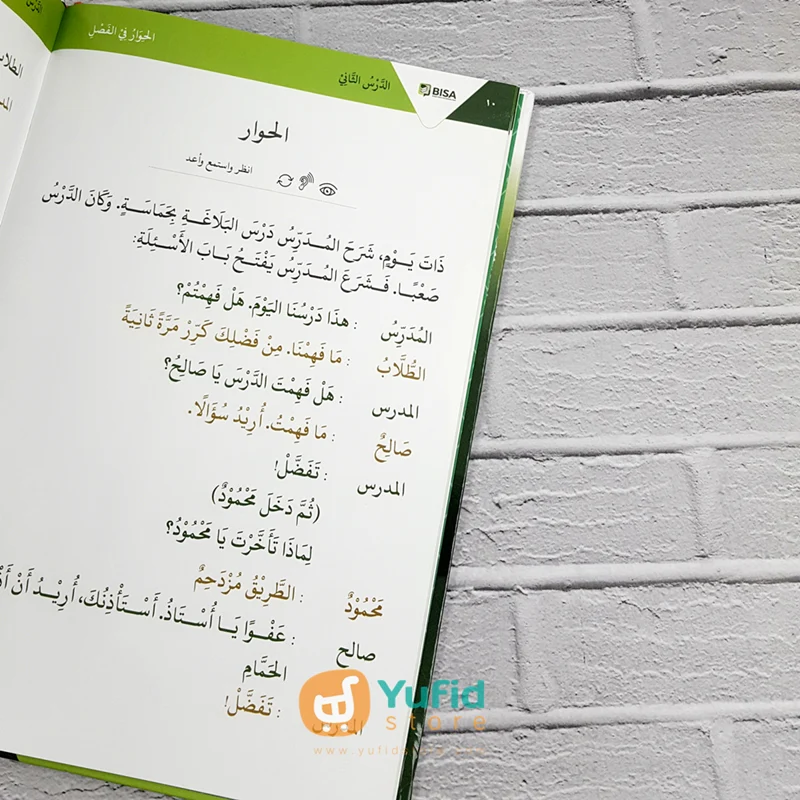 الحِوَارُ فِيْ الفَصْلِ
الدَّرْسُ الثَّانِيْ
BISA
١٠
الحوار
انظر واستمع وأعد
ذَاتَ يَـوْمٍ، شَرَحَ المُـدَرِّسُ دَرْسَ البَلَاغَـةِ بِحَمَاسَـةٍ. وَكَانَ الدَّرْسُ
صَعْبًـا. فَـشَرَعَ المُـدَرِّسُ يَفْتَـحُ بَـابَ الأَسْـئِلَةِ:
المُدَرِّسُ : هذَا دَرْسُنَا اليَوْمَ. هَلْ فَهِمْتُمْ؟
الطُّلَّابُ : مَا فَهِمْنَا. مِنْ فَضْلِكَ كَرِّرْ مَرَّةً ثَانِيَةً
المدرس : هَلْ فَهِمْتَ الدَّرْسَ يَا صَالِحُ؟
صَالِحٌ : مَا فَهِمْتُ. أُرِيْدُ سُؤَالًا.
المدرس : تَفَضَّلْ!
(ثُمَّ دَخَلَ مَحْمُوْدٌ)
لِمَاذَا تَأَخَّرْتَ يَا مَحْمُوْدُ؟
مَحْمُوْدٌ : الطَّرِيْقُ مُزْدَحِمٌ
صالح : عَفْـوًا يَـا أُسْـتَاذُ. أَسْـتَأْذِنُكَ، أُرِيْـدُ أَنْ
الحَمَّامِ
المدرس : تَفَضَّلْ!
Yufid
store
www.yufidstore.com